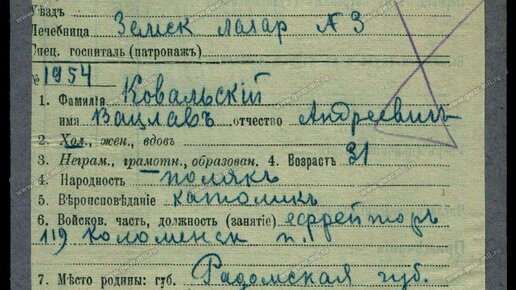 Уѣздъ
Лечебница Земск лазар № 3
Спец. госпиталь (патронаж)
№ 1954
1. Фамилія Ковальскій
имя Вацлавъ отчество Андреевичъ
2. Хол., жен., вдовъ
3. Неграм., грамотн., образован. 4. Возрастъ 31
4. Народность полякъ
5. Вѣроисповѣданіе католикъ
6. Войсков. часть, должность (занятіе) ефрейторъ
119 Коломенск п.
7. Мѣсто родины: губ. Радомская губ.